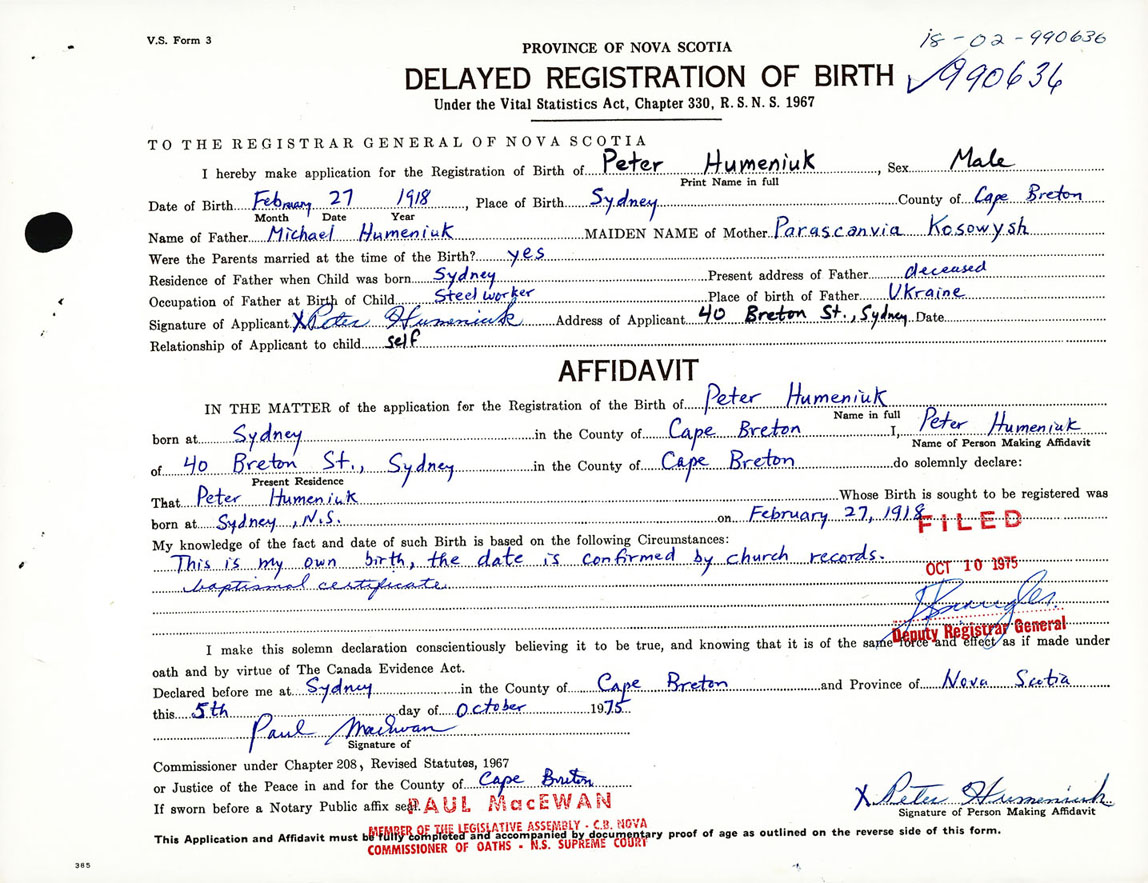 V.S. Form 3
18-02-990636
PROVINCE OF NOVA SCOTIA
DELAYED REGISTRATION OF BIRTH ✓990636
Under the Vital Statistics Act, Chapter 330, R.S.N.S. 1967
TO THE REGISTRAR GENERAL OF NOVA SCOTIA
I hereby make application for the Registration of Birth of Peter Humeniuk, Sex Male
Print Name in full
Date of Birth February 27 1918, Place of Birth Sydney County of Cape Breton
Month Date Year
Name of Father Michael Humeniuk MAIDEN NAME of Mother Parascanvia Kosowysh
Were the Parents married at the time of the Birth? yes
Residence of Father when Child was born Sydney Present address of Father deceased
Occupation of Father at Birth of Child Steel worker Place of birth of Father Ukraine
Signature of Applicant X Peter Humeniuk Address of Applicant 40 Breton St., Sydney Date
Relationship of Applicant to child self
AFFIDAVIT
IN THE MATTER of the application for the Registration of the Birth of Peter Humeniuk
Name in full
born at Sydney in the County of Cape Breton I, Peter Humeniuk
Name of Person Making Affidavit
of 40 Breton St., Sydney in the County of Cape Breton do solemnly declare:
Present Residence
That Peter Humeniuk Whose Birth is sought to be registered was
born at Sydney, N.S. on February 27, 1918
FILED
My knowledge of the fact and date of such Birth is based on the following Circumstances:
This is my own birth, the date is confirmed by church records.
OCT 10 1975
baptismal certificate
Deputy Registrar General
I make this solemn declaration conscientiously believing it to be true, and knowing that it is of the same force and effect as if made under
oath and by virtue of The Canada Evidence Act.
Declared before me at Sydney in the County of Cape Breton and Province of Nova Scotia
this 5th day of October 1975
Paul MacEwan
Signature of
Commissioner under Chapter 208, Revised Statutes, 1967
or Justice of the Peace in and for the County of Cape Breton
If sworn before a Notary Public affix seal.
PAUL MacEWAN
X Peter Humeniuk
Signature of Person Making Affidavit
MEMBER OF THE LEGISLATIVE ASSEMBLY - C.B. NOVA
This Application and Affidavit must be fully completed and accompanied by documentary proof of age as outlined on the reverse side of this form.
COMMISSIONER OF OATHS - N.S. SUPREME COURT
365